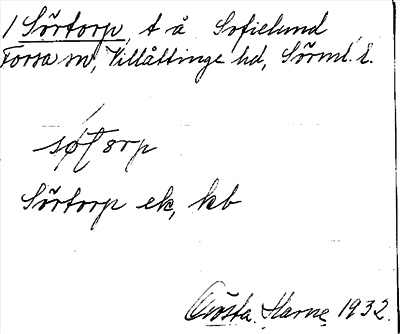 1 Sörtorp, t å Sofielund
Forsa sn, Villåttinge hd, Sörml. l.
søʈorp
Sörtorp ek, kb
Gösta Harne 1932.